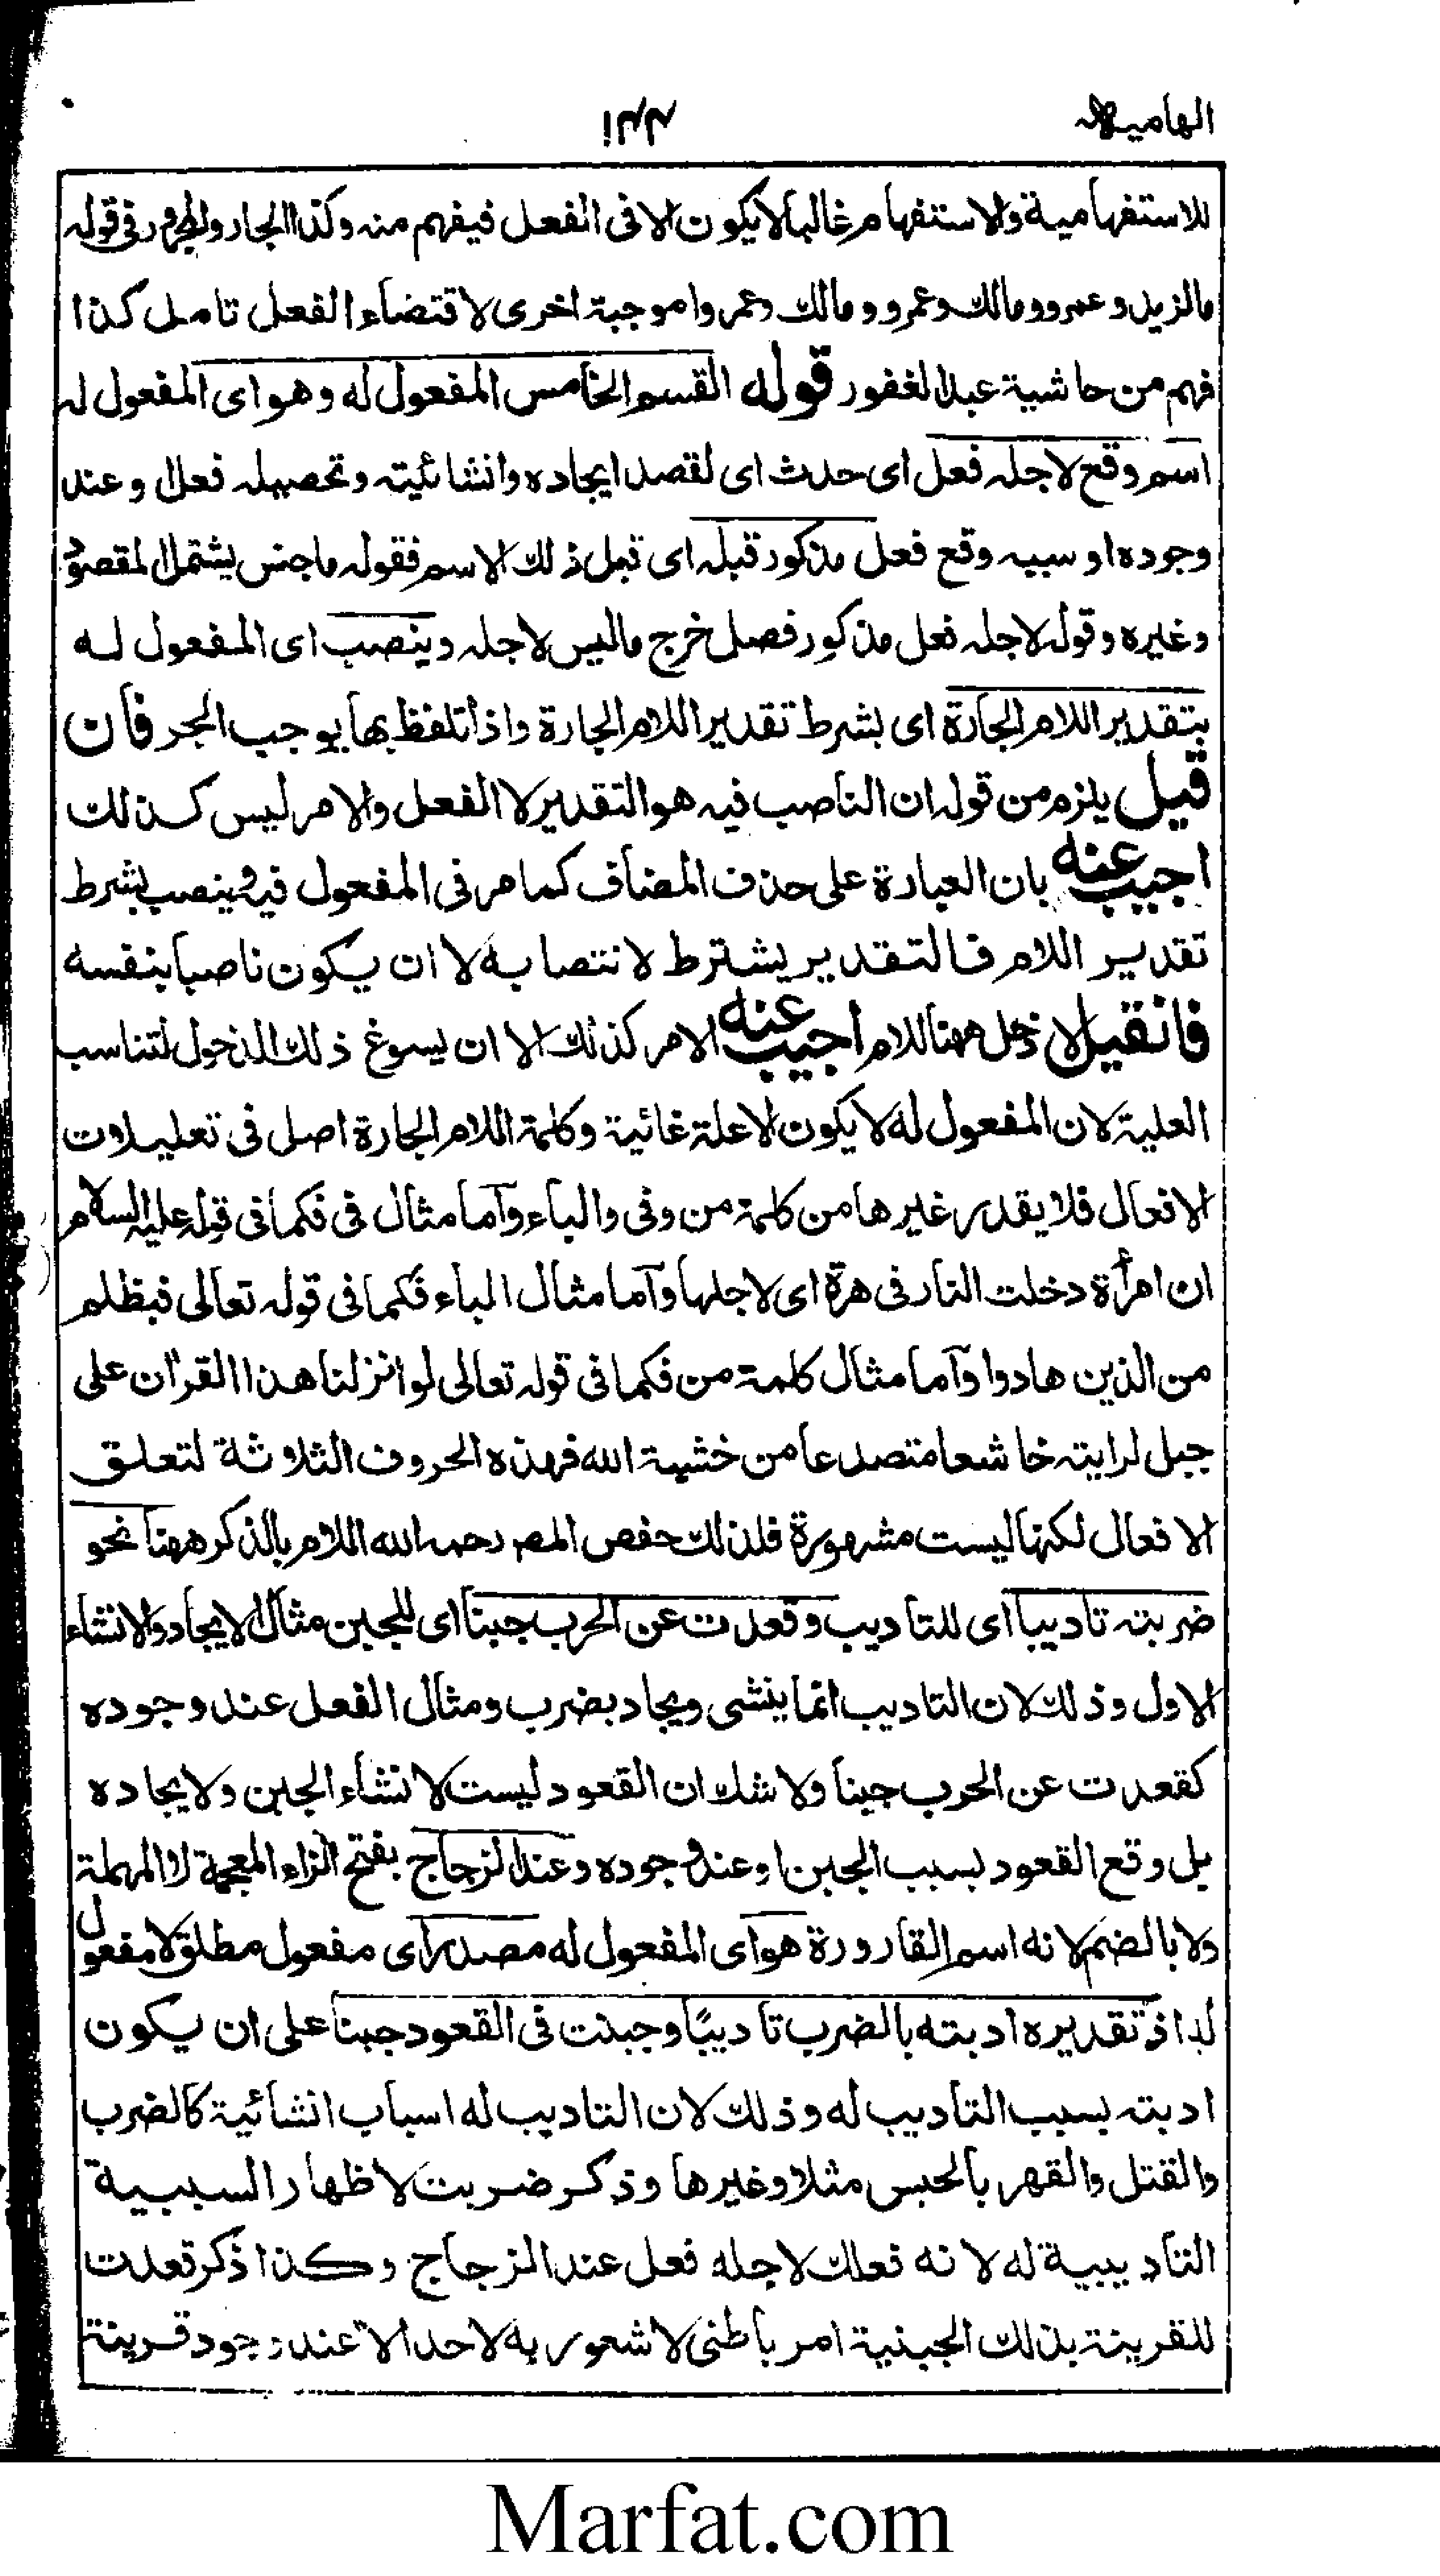 الهامية
للاستفهامية والاستفهام غالبا لا يكون الا فى الفعل فيفهم منه وكذا الجار والمجرور فى قوله
مالزيد وعمرو ومالك وعمرو ومالك وعمروا موجبة اخرى لاقتضاء الفعل تامل كذا
فهم من حاشية عبد الغفور قوله القسم الخامس المفعول له وهو اى المفعول له
اسم وقع لاجله فعل اى حدث اى لقصد ايجاده وانشائيته وتحصيله فعل او عند
وجوده او سببه وقع فعل مذكور قبله اى قبل ذلك الاسم فقوله ما جنس يشتمل المقصود
وغيره وقوله لاجله فعل مذكور فصل خرج ماليس لاجله وينصب اى المفعول له
بتقدير اللام الجارة اى بشرط تقدير اللام الجارة واذا تلفظ بها يوجب الجر فان
قيل يلزم من قوله ان الناصب فيه هو التقدير لا الفعل والامر ليس كذلك
اجيب عنه بان العبارة على حذف المضاف كما مر فى المفعول فيه وينصب بشرط
تقدير اللام فالتقدير يشترط لانتصابه لا ان يكون ناصبا بنفسه
فان قيل لا دخل ههنا للام اجيب عنه الامر كذلك الا ان يسوغ ذلك الدخول لتناسب
العلية لان المفعول له لا يكون الا علة غائية وكلمة اللام الجارة اصل فى تعليلات
الافعال فلا يقدر غيرها من كلمة من وفى والباء وآما مثال فى فكما فى قوله عليه السلام
ان امرأة دخلت النار فى هرة اى لاجلها وآما مثال الباء فكما فى قوله تعالى فبظلم
من الذين هادوا وآما مثال كلمة من فكما فى قوله تعالى لو انزلنا هذا القرآن على
جبل لرايته خاشعا متصدعا من خشية الله فهذه الحروف الثلاثة لتعلق
الافعال لكنها ليست مشهورة فلذلك خفص المصـ رحمه الله اللام بالذكر ههنا نحو
ضربته تاديبا اى للتاديب وقعدت عن الحرب جبنا اى للجبن مثال الايجاد والانشاء
الاول وذلك لان التاديب انما ينشى ويجاد بضرب ومثال الفعل عند وجوده
كقعدت عن الحرب جبنا ولا شك ان القعود ليست لانشاء الجبن ولا يجاده
بل وقع القعود بسبب الجبن او عند وجوده وعند الزجاج بفتح الزاء المعجمة لا المهملة
ولا بالضم لانه اسم القارورة هو اى المفعول له مصدر اى مفعول مطلق لا مفعول
له اذ تقديره ادبته بالضرب تاديبًا وجبنت فى القعود جبنا على ان يكون
ادبته بسبب التأديب له وذلك لان التاديب له اسباب انشائية كالضرب
والقتل والقهر بالحبس مثلا وغيرها وذكر ضربت لاظهار السببية
التاديبية له لانه فعلك لاجله فعل عند الزجاج وكذا ذكر قعدت
للقرينة بذلك الجبنية امر باطنى لا شعور به لاحد الا عند وجود قرينة
Marfat.com